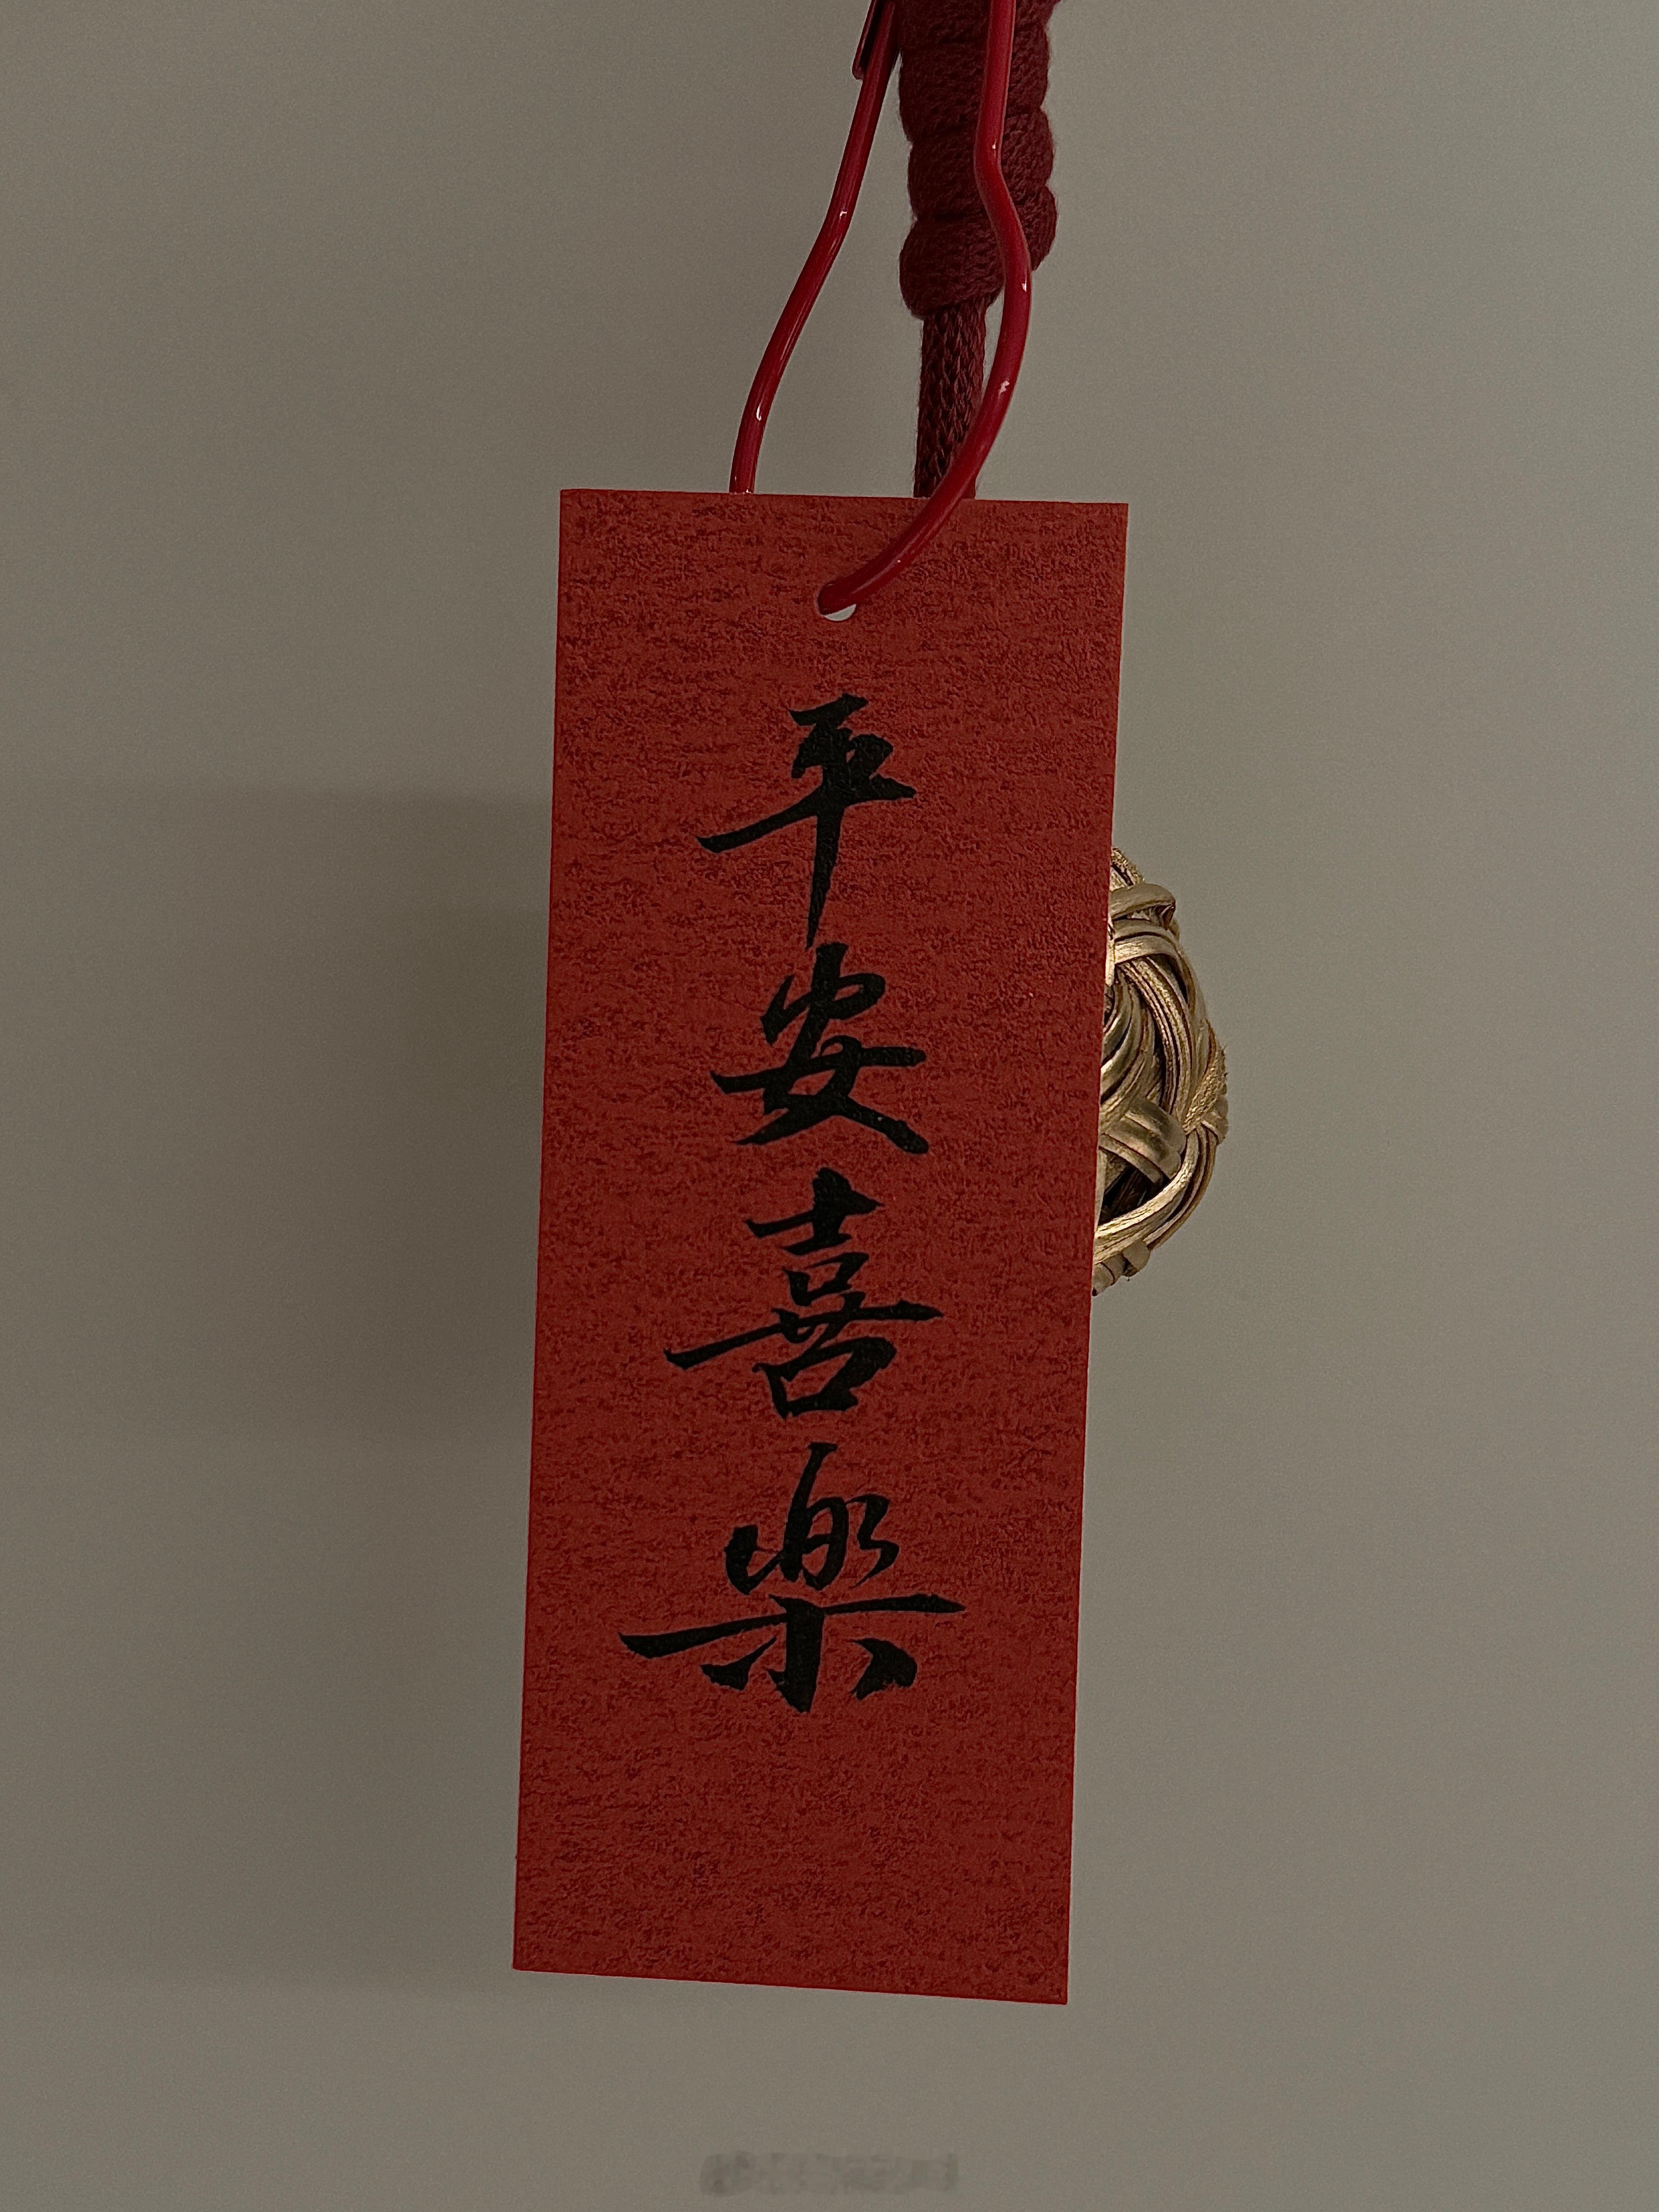 平安喜樂